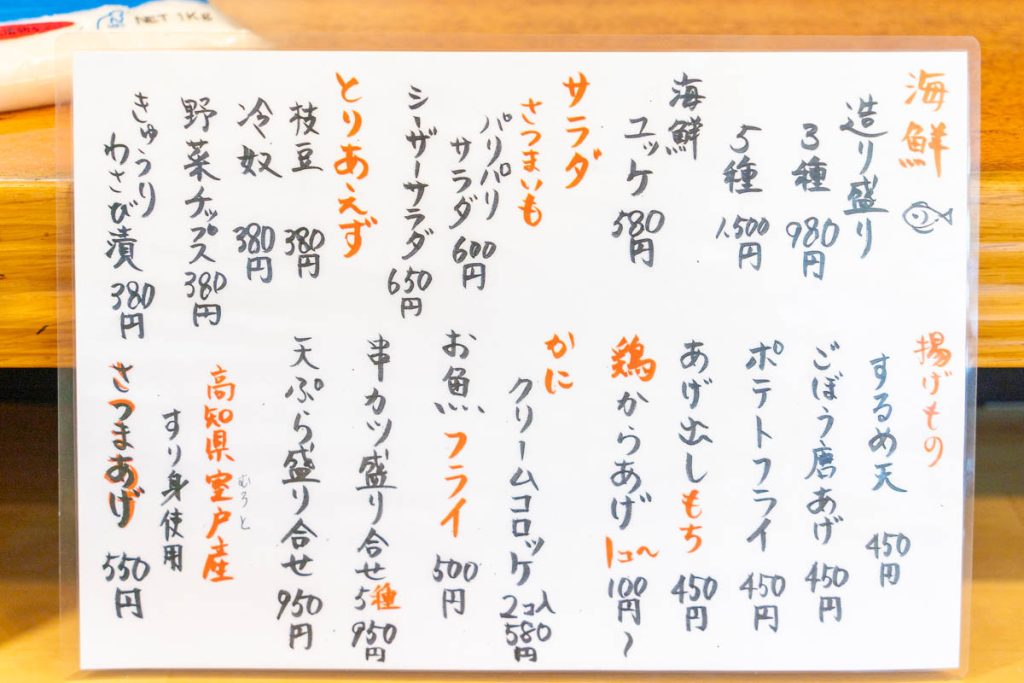 海鮮
造り盛り
3種 980円
5種 1,500円
海鮮
ユッケ 580円
サラダ
さつまいも
パリパリ
サラダ 600円
シーザーサラダ 650円
とりあえず
枝豆 380円
冷奴 380円
野菜チップス 380円
きゅうり
わさび漬 380円
揚げもの
するめ天 450円
ごぼう唐あげ 450円
ポテトフライ 450円
あげ出しもち 450円
鶏からあげ 1コ〜 100円〜
かに
クリームコロッケ 2コ入 580円
お魚フライ 500円
串カツ盛り合せ 5種 950円
天ぷら盛り合せ 950円
高知県室戸産
むろと
すり身使用
さつまあげ 550円
NET 1Kg